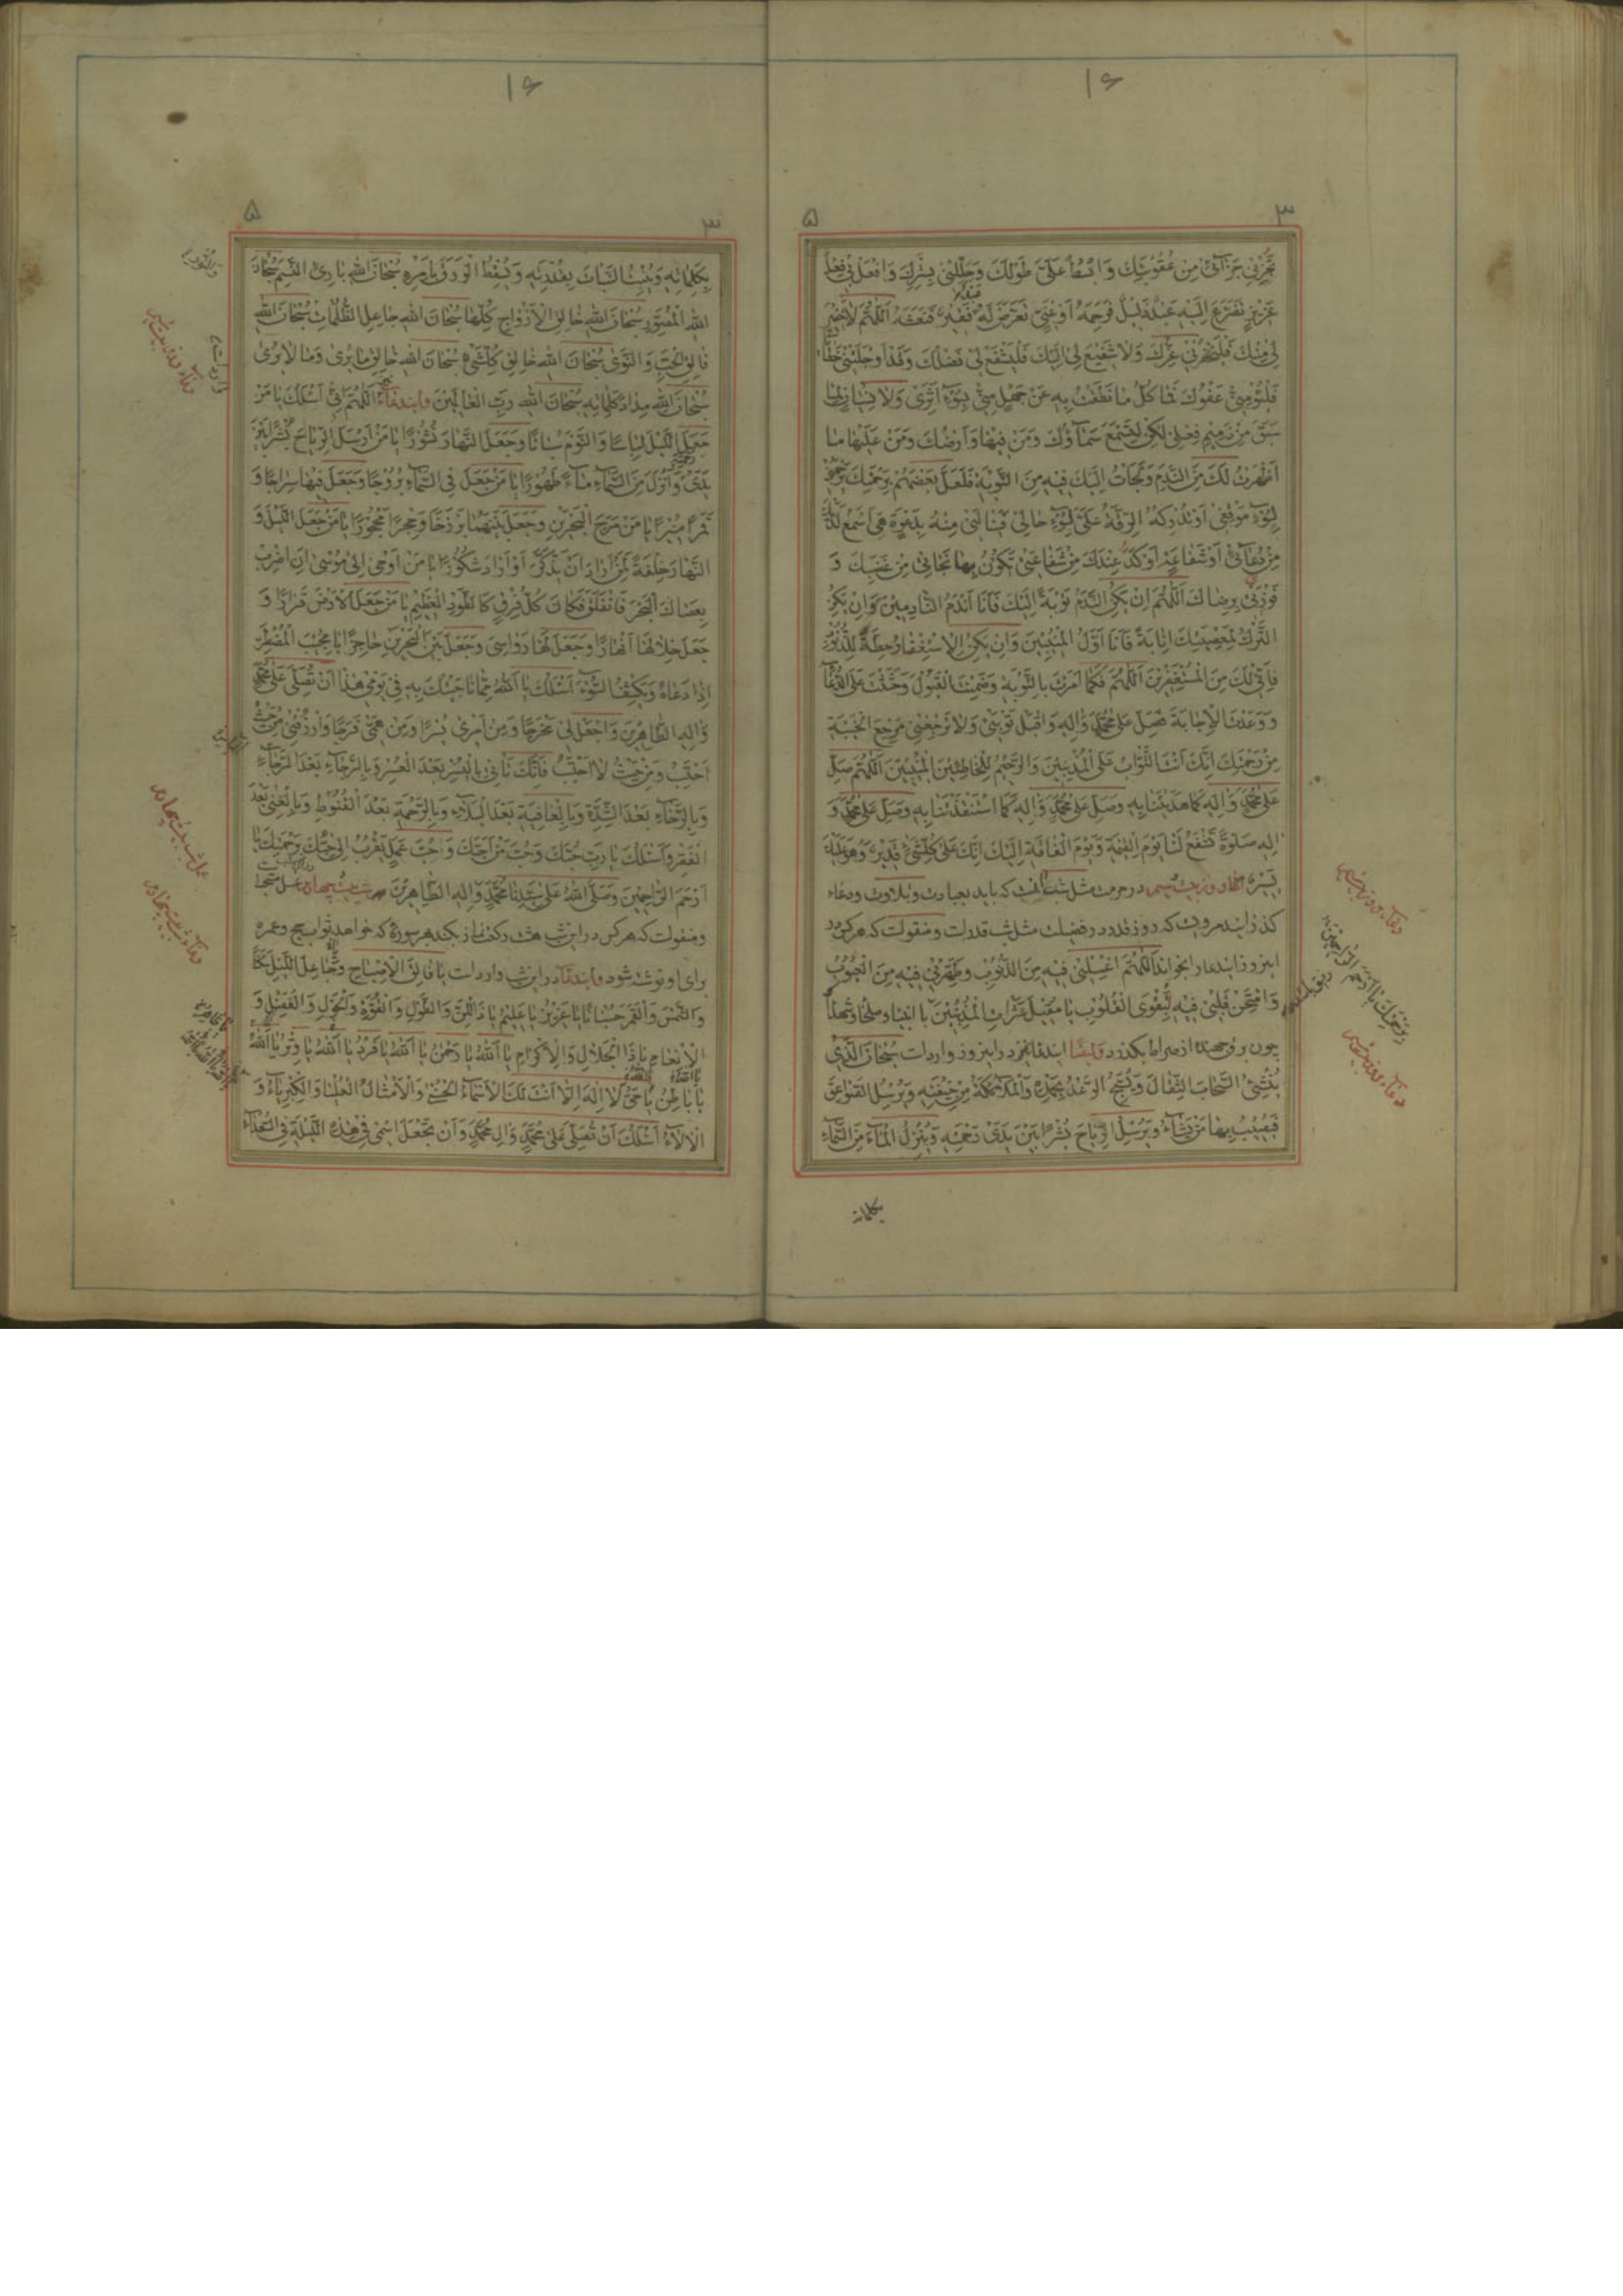 ۱۶
۳
۵
تَجْزِنِي جَزَآئِي مِن عُقُوبَتِكَ وَابْسُطْ عَلَيَّ طَوْلَكَ وَجَلِّلْنِي بِسِتْرِكَ وَافْعَلْ بِي فِعْلَ
عَزِيزٍ تَضَرَّعَ اِلَيْهِ عَبْدٌ ذَلِيلٌ فَرَحِمَهُ اَوْ غَنِيٍّ تَعَرَّضَ لَهُ عَبْدٌ فَقِيرٌ فَنَعَشَهُ اَللّٰهُمَّ لاخَفِيرَ
لِي مِنْكَ فَلْيَخْفُرْنِي عِزُّكَ وَلا شَفِيعَ لِي اِلَيْكَ فَلْيَشْفَعْ لِي فَضْلُكَ وَقَدْ اَوْجَلَتْنِي خَطايايَ
فَلْيُؤْمِنِّي عَفْوُكَ فَما كُلُّ ما نَطَقْتُ بِهِ عَنْ جَهْلٍ مِنِّي بِسُوۤءِ اَثَرِي وَلا نِسْيانٍ لِما
سَبَقَ مِنْ ذَمِيمِ فِعْلِي لكِنْ لِتَسْمَعَ سَمآؤُكَ وَمَنْ فِيها وَاَرْضُكَ وَمَنْ عَلَيْها ما
اَظْهَرْتُ لَكَ مِنَ النَّدَمِ وَلَجَأْتُ اِلَيْكَ فِيهِ مِنَ التَّوْبَةِ فَلَعَلَّ بَعْضَهُمْ بِرَحْمَتِكَ يَرْحَمُنِي
لِسُوۤءِ مَوْقِفِي اَوْ تُدْرِكُهُ الرِّقَّةُ عَلَيَّ لِسُوۤءِ حالِي فَيَنالَنِي مِنْهُ بِدَعْوَةٍ هِيَ اَسْمَعُ لَدَيْكَ
مِنْ دُعآئِي اَوْ شَفاعَةٍ اَوْكَدُ عِنْدَكَ مِنْ شَفاعَتِي تَكُونُ بِها نَجاتِي مِنْ غَضَبِكَ وَ
فَوْزَتِي بِرِضاكَ اَللّٰهُمَّ اِنْ يَكُنِ النَّدَمُ تَوْبَةً اِلَيْكَ فَاَنَا اَنْدَمُ النّادِمِينَ وَاِنْ يَكُنِ
التَّرْكُ لِمَعْصِيَتِكَ اِنابَةً فَاَنَا اَوَّلُ الْمُنِيبِينَ وَاِنْ يَكُنِ الاِسْتِغْفارُ حِطَّةً لِلذُّنُوبِ
فَاِنِّي لَكَ مِنَ الْمُسْتَغْفِرِينَ اَللّٰهُمَّ فَكَما اَمَرْتَ بِالتَّوْبَةِ وَضَمِنْتَ الْقَبُولَ وَحَثَثْتَ عَلَى الدُّعآءِ
وَوَعَدْتَ الاِجابَةَ فَصَلِّ عَلى مُحَمَّدٍ وَآلِهِ وَاقْبَلْ تَوْبَتِي وَلا تَرْجِعْنِي مَرْجِعَ الْخَيْبَةِ
مِنْ رَحْمَتِكَ اِنَّكَ اَنْتَ التَّوّابُ عَلَى الْمُذْنِبِينَ وَالرَّحِيمُ لِلْخاطِئِينَ الْمُنِيبِينَ اَللّٰهُمَّ صَلِّ
عَلى مُحَمَّدٍ وَآلِهِ كَما هَدَيْتَنا بِهِ وَصَلِّ عَلى مُحَمَّدٍ وَآلِهِ كَمَا اسْتَنْقَذْتَنا بِهِ وَصَلِّ عَلى مُحَمَّدٍ وَ
آلِهِ صَلٰوةً تَشْفَعُ لَنا يَوْمَ الْقِيمَةِ وَيَوْمَ الْفاقَةِ اِلَيْكَ اِنَّكَ عَلى كُلِّ شَيْءٍ قَدِيرٌ وَهُوَ عَلَيْكَ
يَسِيرٌ اعمال روز بيست سيم در حرمت مثل شب است كه بايد بعبادت و تلاوت و دعاء
كذرانيد مرويست كه روز قدر در فضيلت مثل شب قدر است و منقولست كه هر كس در
اين روز ايندعا را بخواند اَللّٰهُمَّ اغْسِلْنِي فِيهِ مِنَ الذُّنُوبِ وَطَهِّرْنِي فِيهِ مِنَ الْعُيُوبِ
وَامْتَحِنْ قَلْبِي فِيهِ لِتَقْوَى الْقُلُوبِ يا مُقِيلَ عَثَراتِ الْمُذْنِبِينَ با انبياء و صلحاء و شهدا
چون برق جهنده از صراط بگذرد و ايضا ايندعا نيز در اينروز وارد است سُبْحانَ الَّذِي
يُنْشِئُ السَّحابَ الثِّقالَ وَيُسَبِّحُ الرَّعْدُ بِحَمْدِهِ وَالْمَلآئِكَةُ مِنْ خِيفَتِهِ وَيُرْسِلُ الصَّواعِقَ
فَيُصِيبُ بِها مَنْ يَشآءُ وَيُرْسِلُ الرِّياحَ بُشْرًا بَيْنَ يَدَيْ رَحْمَتِهِ وَيُنْزِلُ الْمآءَ مِنَ السَّمآءِ
دعآء روز بيست سيم
بِرَحْمَتِكَ يا اَرْحَمَ الرّاحِمِينَ
دعآء روز بيست سيم
بكلماته
۱۶
۳
۵
بِكَلِماتِهِ وَيُنْبِتُ النَّباتَ بِقُدْرَتِهِ وَيُسْقِطُ الْوَرَقَ بِاَمْرِهِ سُبْحانَ اللهِ بارِئِ النَّسَمِ سُبْحانَ
اللهِ الْمُصَوِّرِ سُبْحانَ اللهِ خالِقِ الاَزْواجِ كُلِّها سُبْحانَ اللهِ جاعِلِ الظُّلُماتِ سُبْحانَ اللهِ
فالِقِ الْحَبِّ وَالنَّوى سُبْحانَ اللهِ خالِقِ كُلِّ شَيْءٍ سُبْحانَ اللهِ خالِقِ ما يُرى وَما لا يُرى
سُبْحانَ اللهِ مِدادَ كَلِماتِهِ سُبْحانَ اللهِ رَبِّ الْعالَمِينَ وايندعاء اَللّٰهُمَّ اِنِّي اَسْئَلُكَ يا مَنْ
جَعَلَ اللَّيْلَ لِباسًا وَالنَّوْمَ سُباتًا وَجَعَلَ النَّهارَ نُشُورًا يا مَنْ اَرْسَلَ الرِّياحَ بُشْرًا بَيْنَ
يَدَيْ رَحْمَتِهِ وَاَنْزَلَ مِنَ السَّمآءِ مآءً طَهُورًا يا مَنْ جَعَلَ فِي السَّمآءِ بُرُوجًا وَجَعَلَ فِيها سِراجًا وَ
قَمَرًا مُنِيرًا يا مَنْ مَرَجَ الْبَحْرَيْنِ وَجَعَلَ بَيْنَهُما بَرْزَخًا وَحِجْرًا مَحْجُورًا يا مَنْ جَعَلَ اللَّيْلَ وَ
النَّهارَ خِلْفَةً لِمَنْ اَرادَ اَنْ يَذَّكَّرَ اَوْ اَرادَ شُكُورًا يا مَنْ اَوْحى اِلى مُوسى اَنِ اضْرِبْ
بِعَصاكَ الْبَحْرَ فَانْفَلَقَ فَكانَ كُلُّ فِرْقٍ كَالطَّوْدِ الْعَظِيمِ يا مَنْ جَعَلَ الاَرْضَ قَرارًا وَ
جَعَلَ خِلالَها اَنْهارًا وَجَعَلَ لَها رَواسِيَ وَجَعَلَ بَيْنَ الْبَحْرَيْنِ حاجِزًا يا مُجِيبَ الْمُضْطَرِّ
اِذا دَعاهُ وَيَكْشِفُ السُّوۤءَ اَسْئَلُكَ يا اَللهُ مِمّا ناجَيْتُكَ بِهِ فِي يَوْمِي هذا اَنْ تُصَلِّيَ عَلى مُحَمَّدٍ
وَآلِهِ الطّاهِرِينَ وَاجْعَلْ لِي مَخْرَجًا وَمِنْ اَمْرِي يُسْرًا وَمِنْ هَمِّي فَرَجًا وَارْزُقْنِي مِنْ حَيْثُ
اَحْتَسِبُ وَمِنْ حَيْثُ لا اَحْتَسِبُ فَاِنَّكَ تَأْتِي بِالْيُسْرِ بَعْدَ الْعُسْرِ وَبِالرَّخآءِ بَعْدَ
وَبِالرَّخآءِ بَعْدَ الشِّدَّةِ وَبِالْعافِيَةِ بَعْدَ الْبَلآءِ وَبِالرَّحْمَةِ بَعْدَ الْقُنُوطِ وَبِالْغِنى بَعْدَ
الْفَقْرِ وَاَسْئَلُكَ يا رَبِّ حُبَّكَ وَحُبَّ مَنْ اَحَبَّكَ وَحُبَّ عَمَلٍ يُقَرِّبُ اِلى حُبِّكَ بِرَحْمَتِكَ يا
اَرْحَمَ الرّاحِمِينَ وَصَلَّى اللهُ عَلى سَيِّدِنا مُحَمَّدٍ وَآلِهِ الطّاهِرِينَ شب بيست چهارم غسل
ومنقولست كه هر كس در اين شب هشت ركعت نماز بكند هر سوره كه خواهد ثواب حج و عمره
براى او نوشته شود وايندعا در اين شب وارد است يا فالِقَ الاِصْباحِ وَجاعِلَ اللَّيْلِ سَكَنًا
وَالشَّمْسِ وَالْقَمَرِ حُسْبانًا يا عَزِيزُ يا عَلِيمُ يا ذَا الْمَنِّ وَالطَّوْلِ وَالْقُوَّةِ وَالْحَوْلِ وَالْفَضْلِ وَ
الاِنْعامِ يا ذَا الْجَلالِ وَالاِكْرامِ يا اَللهُ يا رَحْمنُ يا اَللهُ يا فَرْدُ يا اَللهُ يا وِتْرُ يا اَللهُ
يا باطِنُ يا حَيُّ لا اِلهَ اِلاّ اَنْتَ لَكَ الاَسْمآءُ الْحُسْنى وَالاَمْثالُ الْعُلْيا وَالْكِبْرِيآءُ وَ
الآلآءُ اَسْئَلُكَ اَنْ تُصَلِّيَ عَلى مُحَمَّدٍ وَآلِ مُحَمَّدٍ وَاَنْ تَجْعَلَ اسْمِي فِي هذِهِ اللَّيْلَةِ فِي السُّعَدآءِ
وَالنُّورِ
دعآء روز بيست سيم
عمل شب بيست چهارم
دعآء شب بيست چهارم